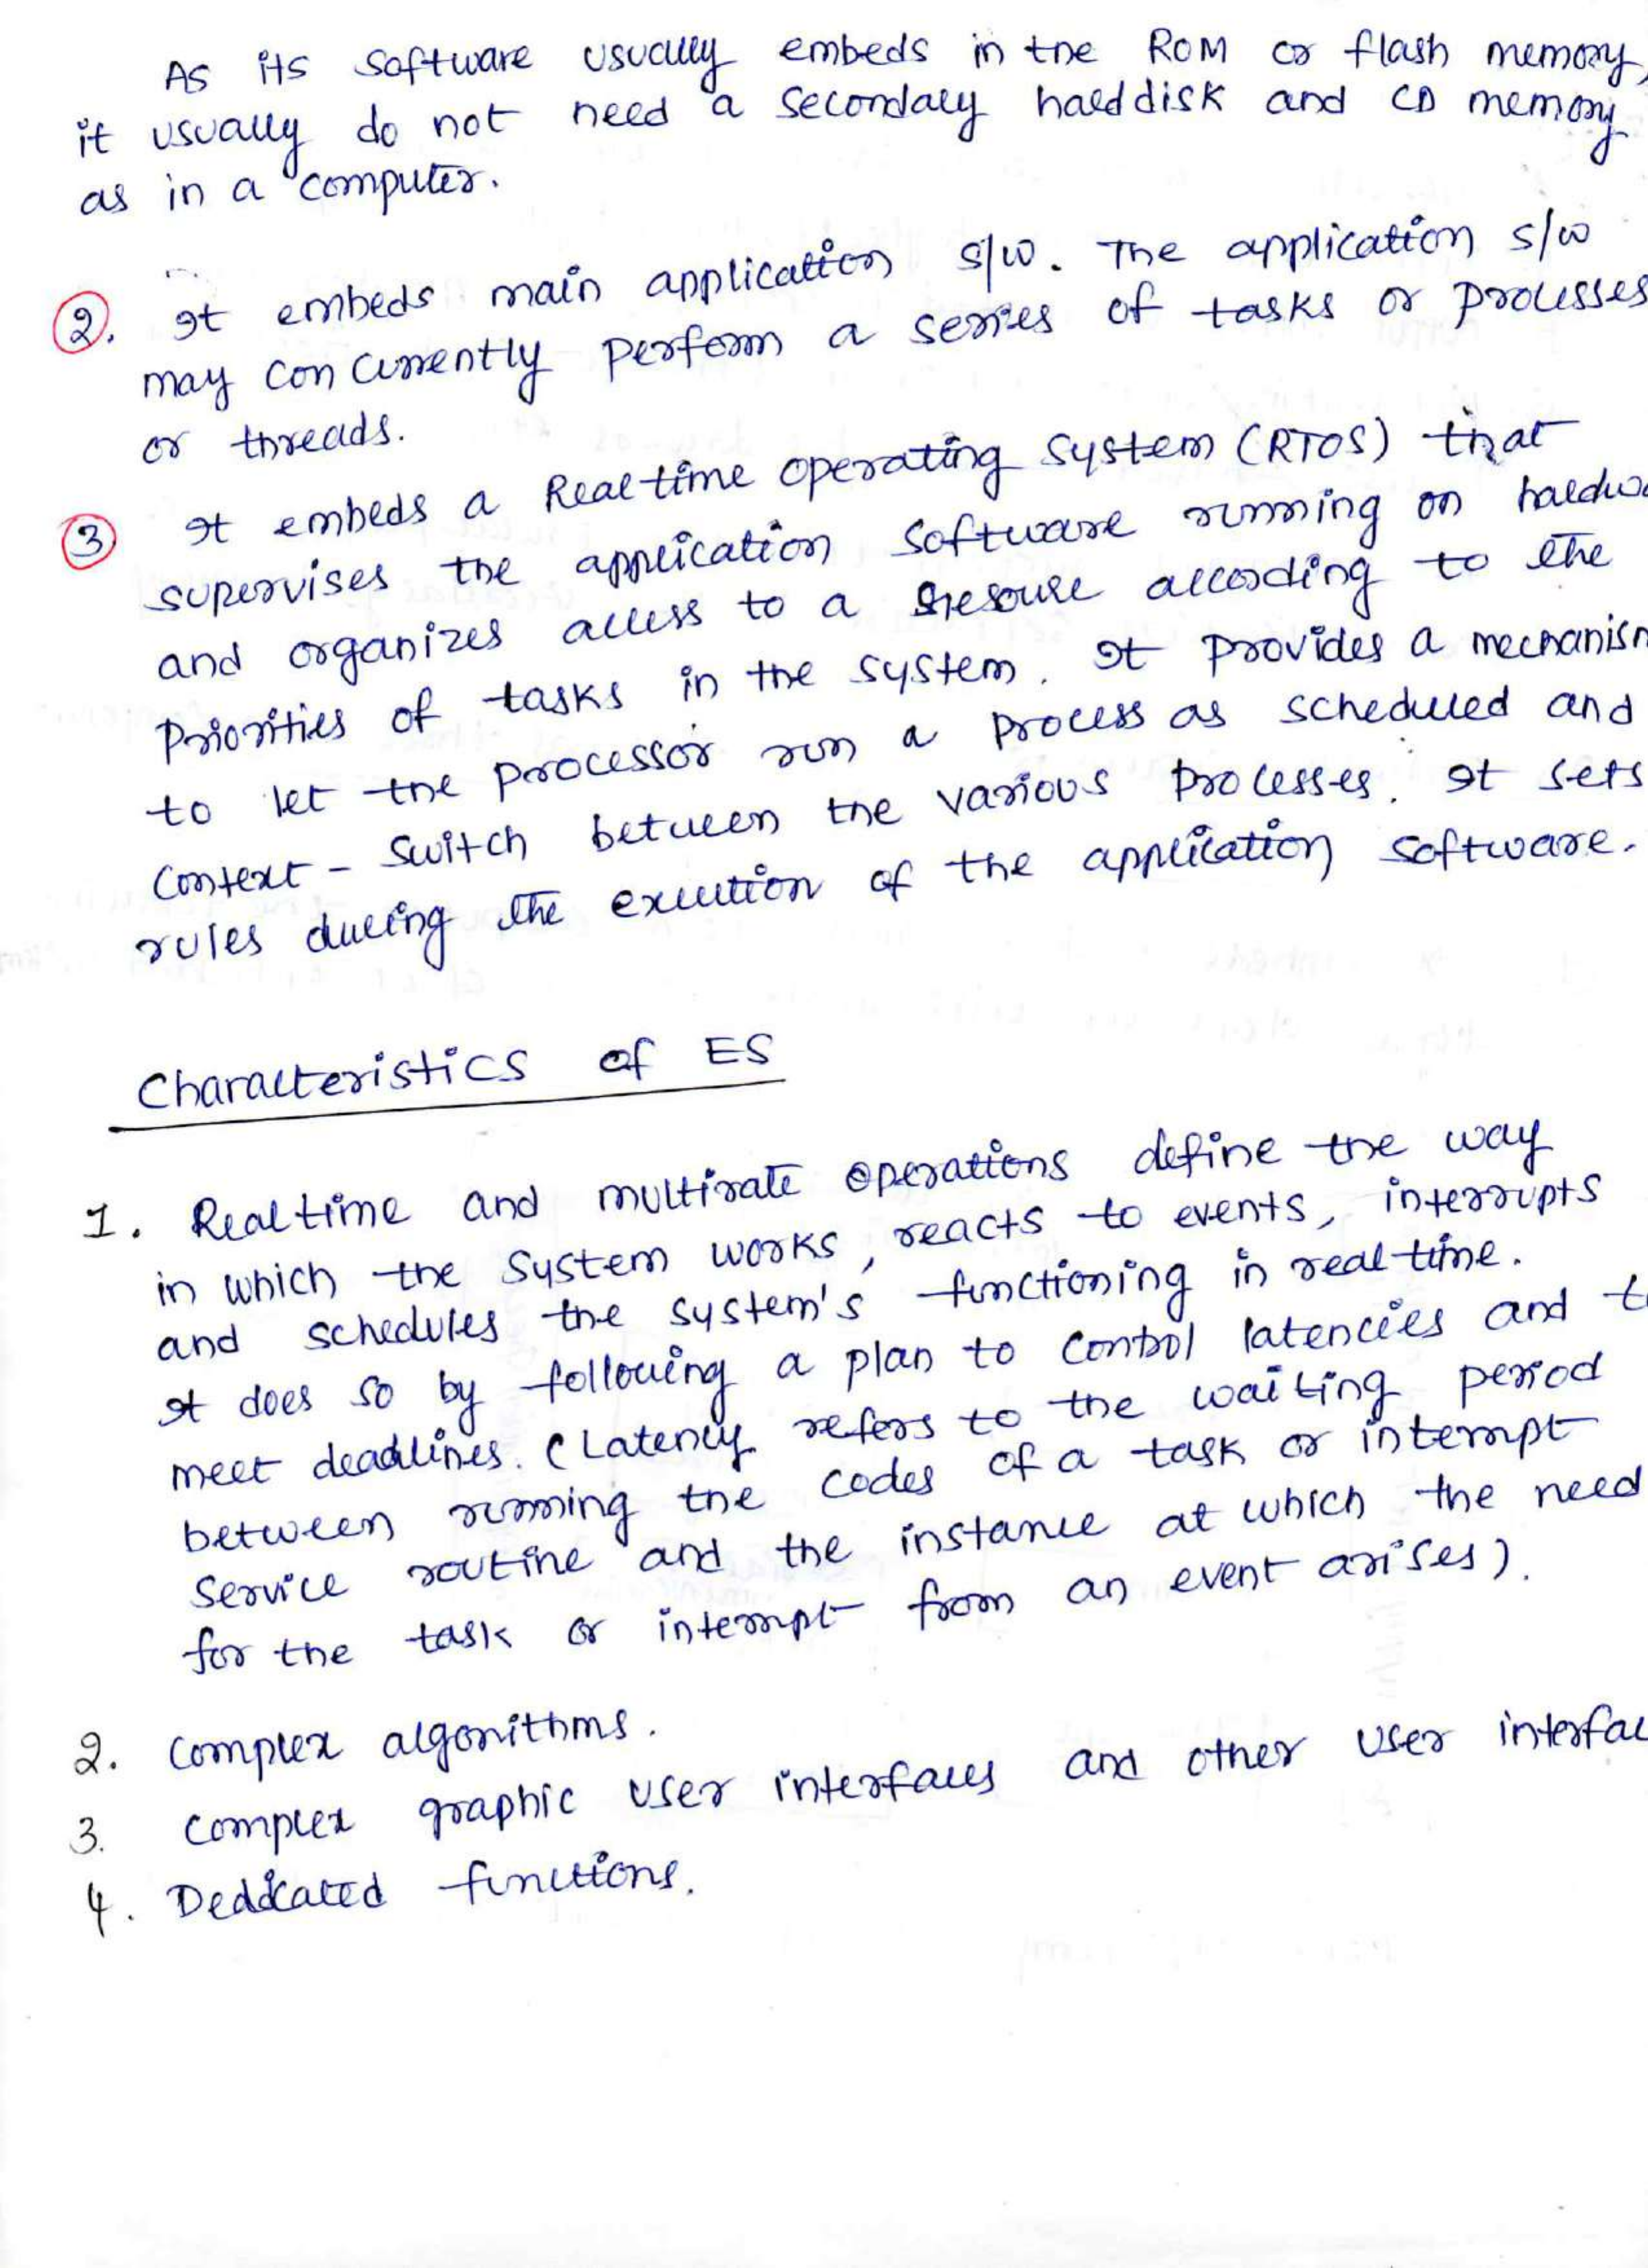 As its software usually embeds in the ROM or flash memory,
it usually do not need a secondary harddisk and CD memory
as in a computer.
2. It embeds main application s/w. The application s/w
may concurrently perform a series of tasks or processes
or threads.
3 It embeds a Realtime operating system (RTOS) that
supervises the application software running on hardwa
and organizes access to a resource according to the
priorities of tasks in the system. It provides a mechanism
to let the processor run a process as scheduled and
context - switch between the various processes. It sets
rules during the execution of the application software.
Characteristics of ES
1. Realtime and multirate operations define the way
in which the system works, reacts to events, interrupts
and schedules the system's functioning in real-time.
It does so by following a plan to control latencies and t
meet deadlines. (Latency refers to the waiting period
between running the codes of a task or interrupt
service routine and the instance at which the need
for the task or interrupt from an event arises).
2. Complex algorithms.
3. Complex graphic user interfaces and other user interfac
4. Dedicated functions.